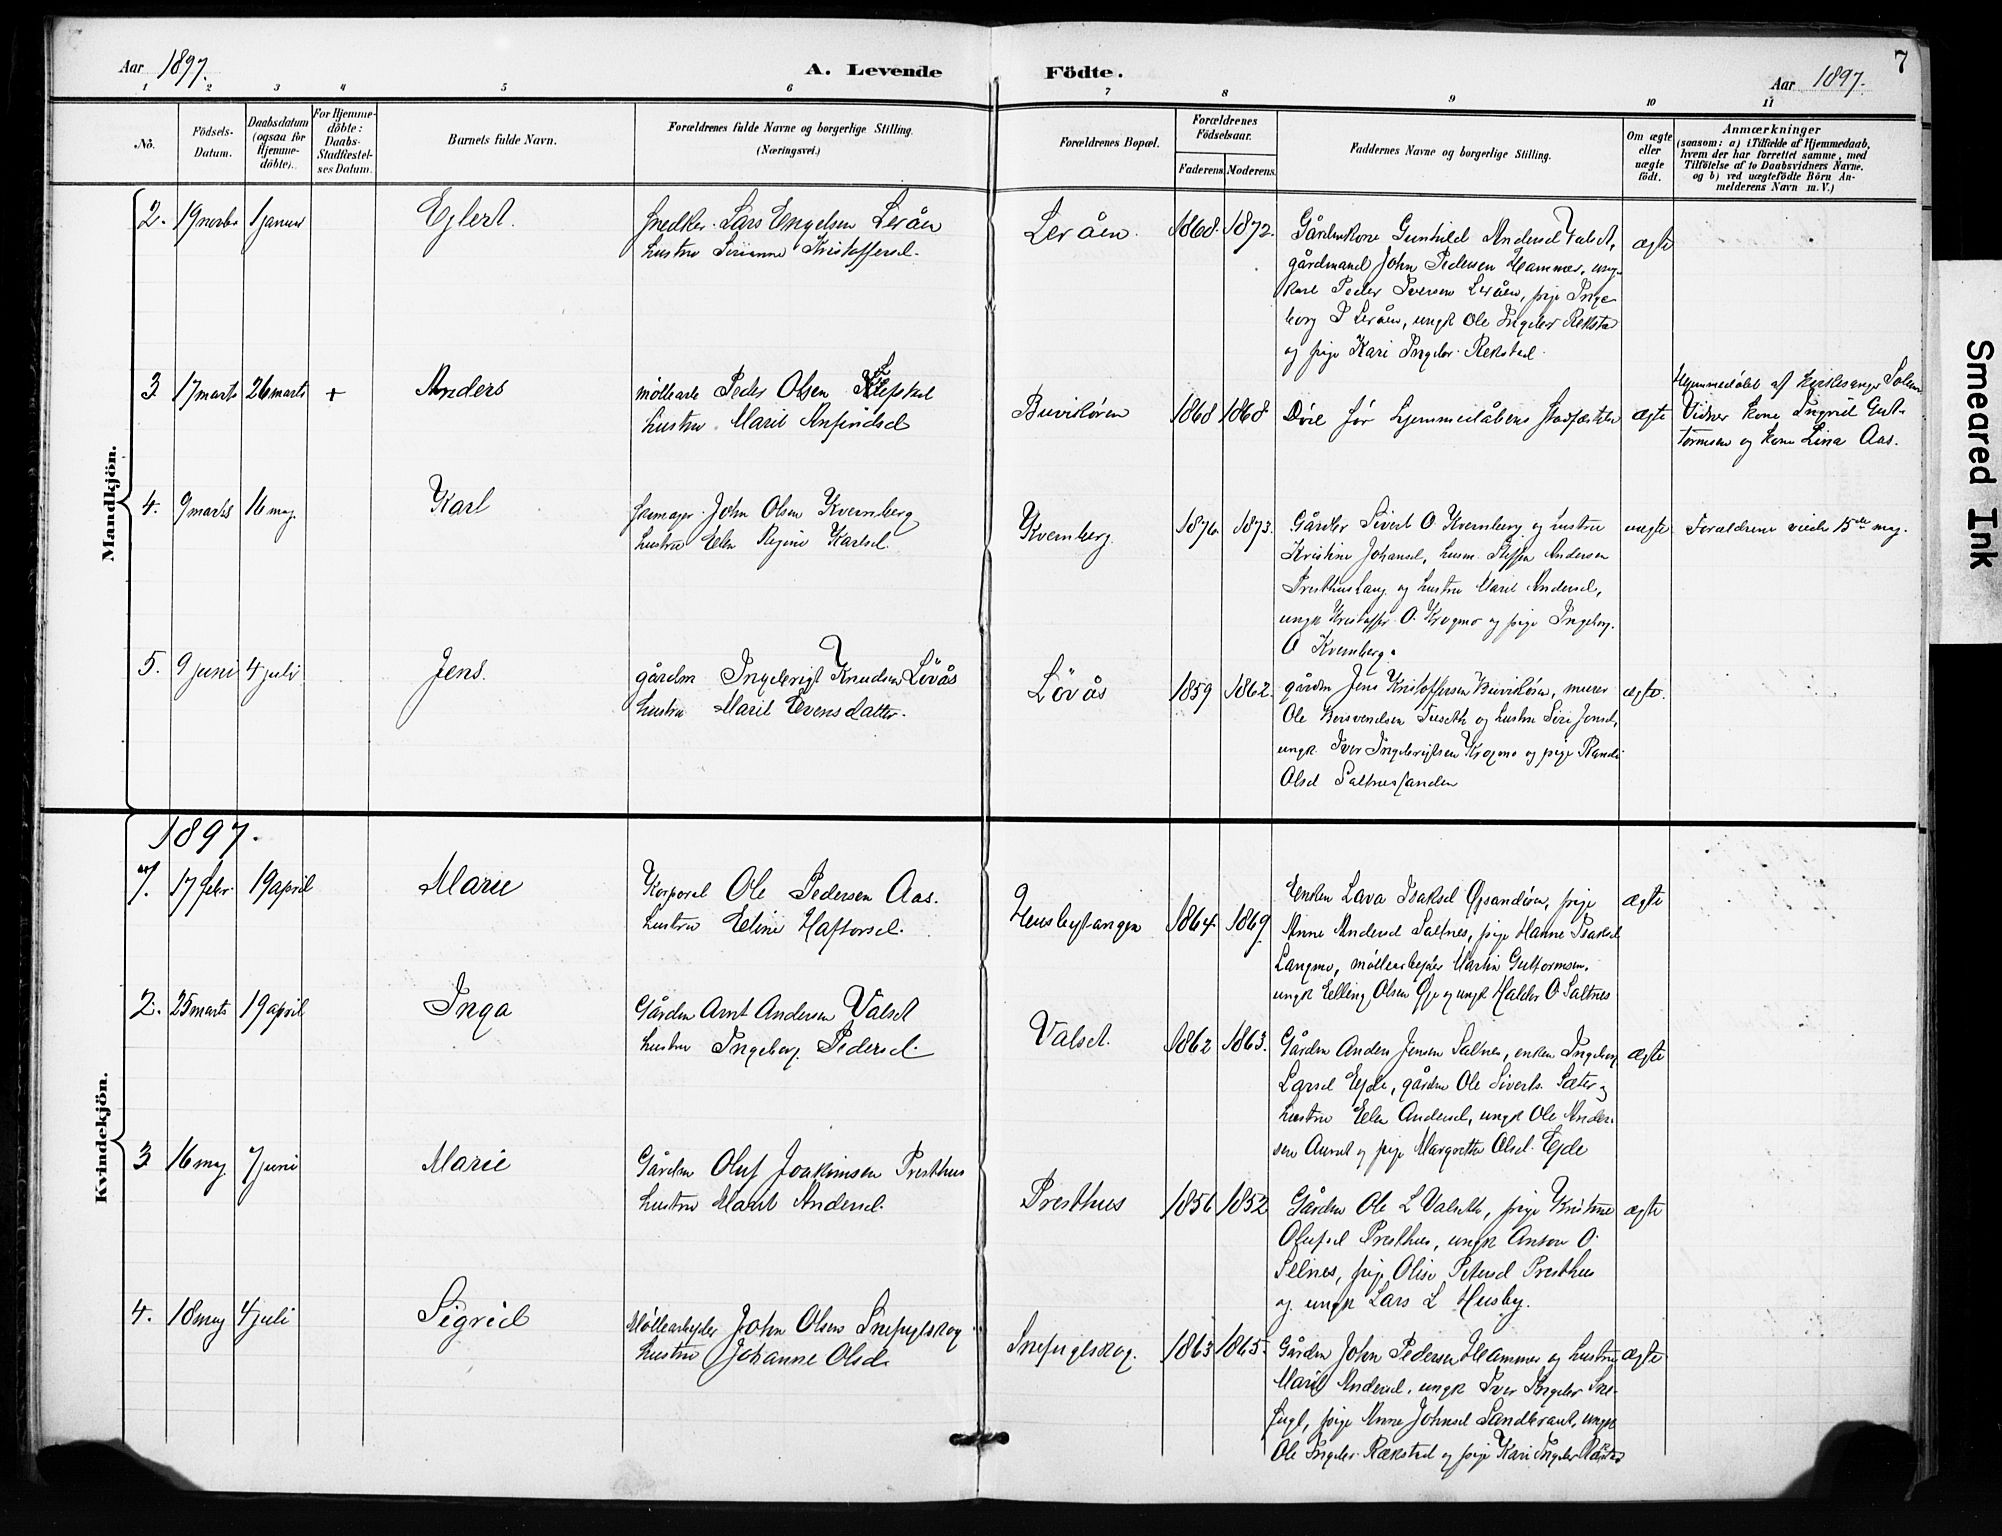 7
Aar 1897.
A. Levende Födte.
Aar 1897.
1 2 3 4 5 6 7 8 9 10 11
No.
Födsels-
Datum.
Daabsdatum
(ogsaa for
Hjemme-
döbte).
For Hjemme-
döbte:
Daabs-
Stadfæstel-
ses Datum.
Barnets fulde Navn.
Forældrenes fulde Navne og borgerlige Stilling.
(Næringsvei.)
Forældrenes Bopæl.
Forældrenes
Födselsaar.
Faderens Moderens
Faddernes Navne og borgerlige Stilling.
Om ægte
eller
uægte
födt.
Anmærkninger
(saasom: a) i Tilfælde af Hjemmedaab,
hvem der har forrettet samme, med
Tilföielse af to Daabsvidners Navne.
og b) ved uægtefödte Börn An-
melderens Navn m. V.)
Mandkjön.
2. 19 novbr 1 januar
Ejlert
snedker Lars Engelsen Leråen
hustru Kristoffersd.
Leråen.
1868. 1872.
Gårdmkone Gunhild Andersd Valset,
gårdmand John Pedersen Hammer, ung-
karl Peder Iversen Leråen, pige Inge-
borg I Leråen, ungk Ole Ingebr Rekstad
og pige Kari Ingebr. Rekstad.
ægte
3. 17 marts 26 marts +
Anders
møllearb Peder Olsen
hustru Marit Anfindsd
Buviksören
1868 1868.
Död før hjemmedåbens stadfæstelse
ægte
Hjemmedöbt af kirkesanger Solem
Vidner kone Ingrid Gut-
tormsen og kone Lina Aas.
4. 9 marts 16 maj
Karl
John Olsen Kvernberg
hustru Elen Regine Karlsd.
Kvernberg.
1876. 1873.
Gårdbr Sivert O. Kvernberg og hustru
Kristine Johansd, husm. Steffen Andersen
Presthusvang og hustru Marit Andersd,
ungk Kristoffer O. Krogmo og pige Ingeborg
O Kvernberg.
uægte
Forældrene viede 15de maj.
5. 9 juni 4 juli
Jens.
gårdm Ingebrigt Knudsen Lövås
hustru Marit Evensdatter.
Lövås
1859 1862.
gårdm Jens Kristoffersen Buviksören, murer
Ole Tuseth og hustru Siri Jensd,
ungk Iver Ingebrigtsen Krogmo og pige Randi
Olsd Saltnessanden
ægte.
Kvindekjön.
1897.
1. 17 febr. 19 april
Marie
Korporal Ole Pedersen Aas.
hustru Eline Haftorsd.
Husbytangen
1864. 1869.
Enken Lava Isaksd Øysandören, pige
Anne Andersd Saltnes, pige Hanne Isaksd
Langmo, møllearbejder Martin Guttormsen,
ungk Elling Olsen Øye og ungk Haldor O Saltnes
ægte
2. 25 marts 19 april
Inga
Gårdm Arnt Andersen Valset
hustru Ingeborg Pedersd.
Valset.
1862 1863.
Gårdm Anders Jensen Saltnes, enken Ingeborg
Larsd Ejde, gårdm Ole Siverts. Sæter og
hustru Elen Andersd, ungk Ole Ander-
sen Aunet og pige Margrethe Olsd. Ejde
ægte
3 16 maj 7 juni
Marie
Gårdm Oluf Joakimsen Presthus
hustru Marit Andersd.
Presthus
1856 1852
Gårdm Ole L Valseth, pige Kristine
Olufsd Presthus, ungk Anton O.
Selnes, pige Olise Petersd Presthus
og ungk Lars L Husby.
ægte
4. 18 maj 4 juli
Sigrid
Møllearbejder John Olsen Snefuglskog
hustru Johanne Olsd.
Snefuglskog.
1863 1865.
Gårdm John Pedersen Hammer og hustru
Marit Andersd, ungk Iver Ingebr Sne-
fugl, pige Anne Johnsd Sandbraut, ungk
Ole Ingebr Rækstad og pige Kari Ingebr Rækstad
ægte
Smeared Ink